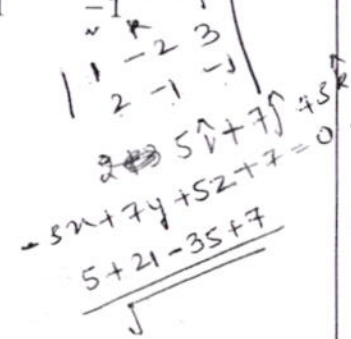 -1
1 -2 3
2 -1 -1
5î + 7ĵ + 3k̂
-5x + 7y + 5z + 7 = 0
5 + 21 - 35 + 7
√